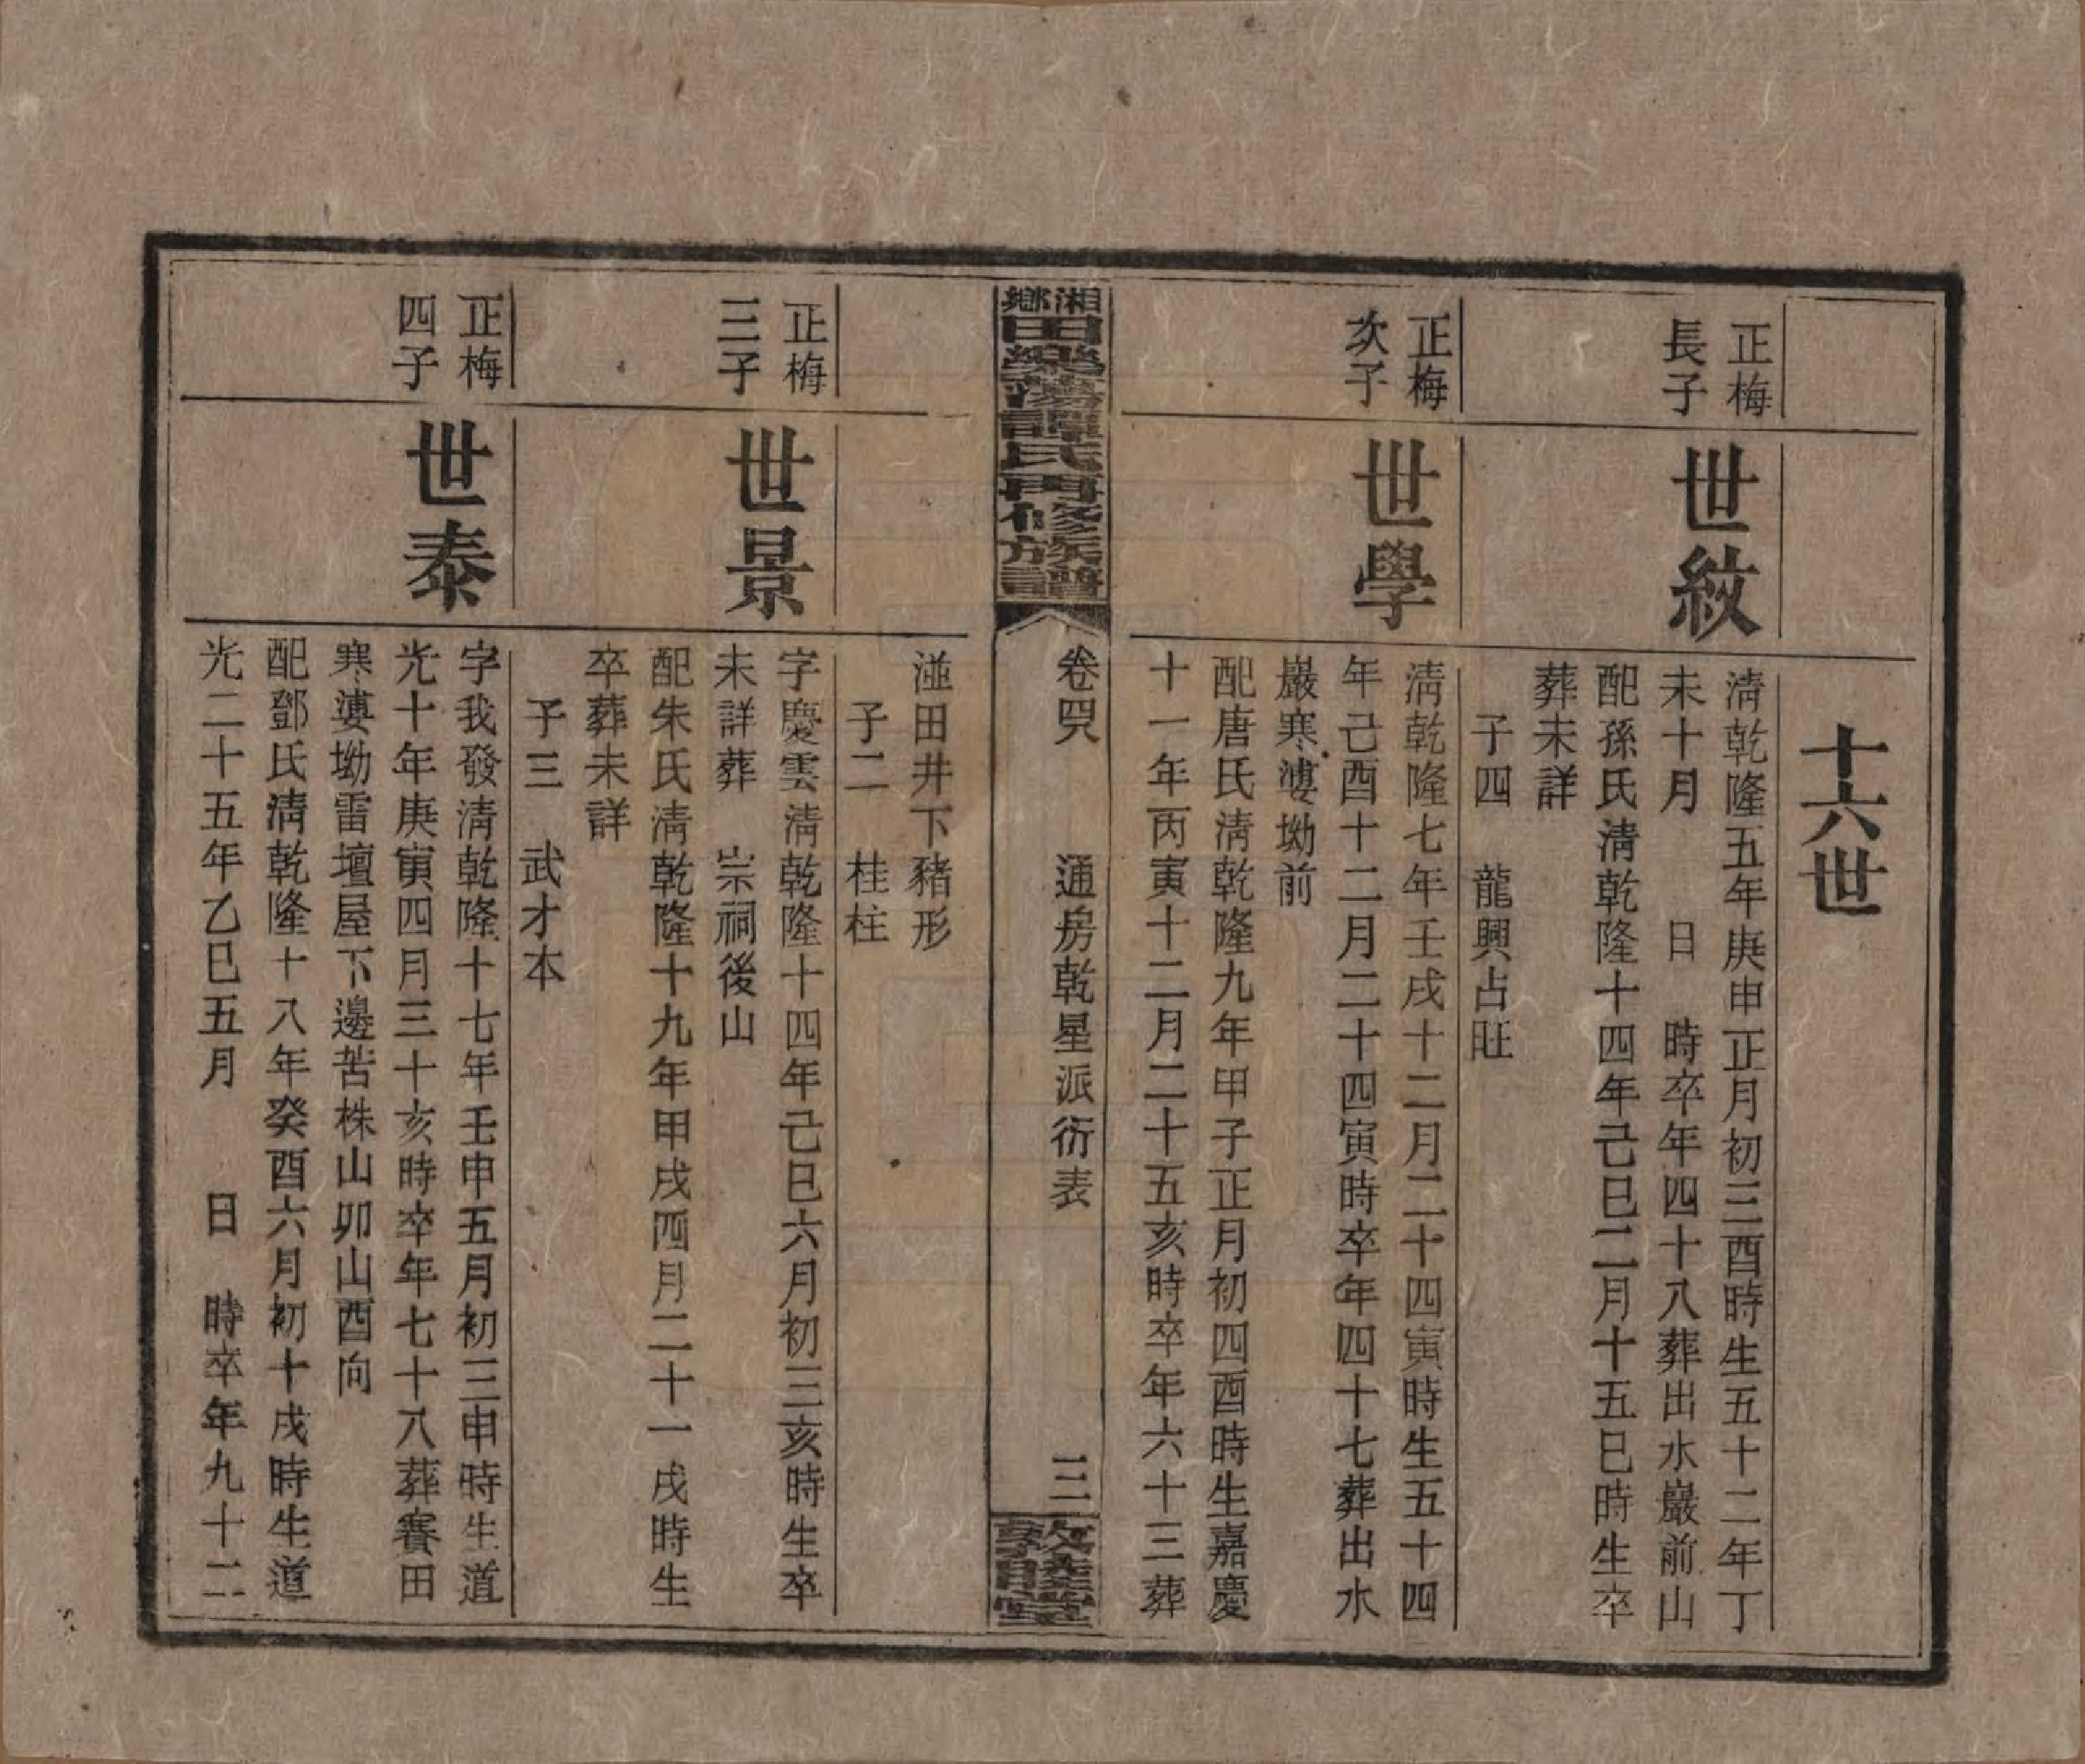 十六世
正梅
長子
世紋
清乾隆五年庚申正月初三酉時生五十二年丁
未十月　日　時卒年四十八葬出水巖前山
配孫氏清乾隆十四年己巳二月十五巳時生卒
葬未詳
子四　龍興占旺
正梅
次子
世學
清乾隆七年壬戌十二月二十四寅時生五十四
年己酉十二月二十四寅時卒年四十七葬出水
巖寒婆坳前
配唐氏清乾隆九年甲子正月初四酉時生嘉慶
十一年丙寅十二月二十五亥時卒年六十三葬
湘鄉田樂蕩譚氏再修族譜
卷四
通房乾星派衍表
三
敦睦堂
湴田井下豬形
子二　桂柱
正梅
三子
世景
字慶雲清乾隆十四年己巳六月初三亥時生卒
未詳葬　宗祠後山
配朱氏清乾隆十九年甲戌四月二十一戌時生
卒葬未詳
子三　武才本
正梅
四子
世泰
字我發清乾隆十七年壬申五月初三申時生道
光十年庚寅四月三十亥時卒年七十八葬賽田
寒婆坳雷壇屋下邊苦株山卯山酉向
配鄧氏清乾隆十八年癸酉六月初十戌時生道
光二十五年乙巳五月　日　時卒年九十二